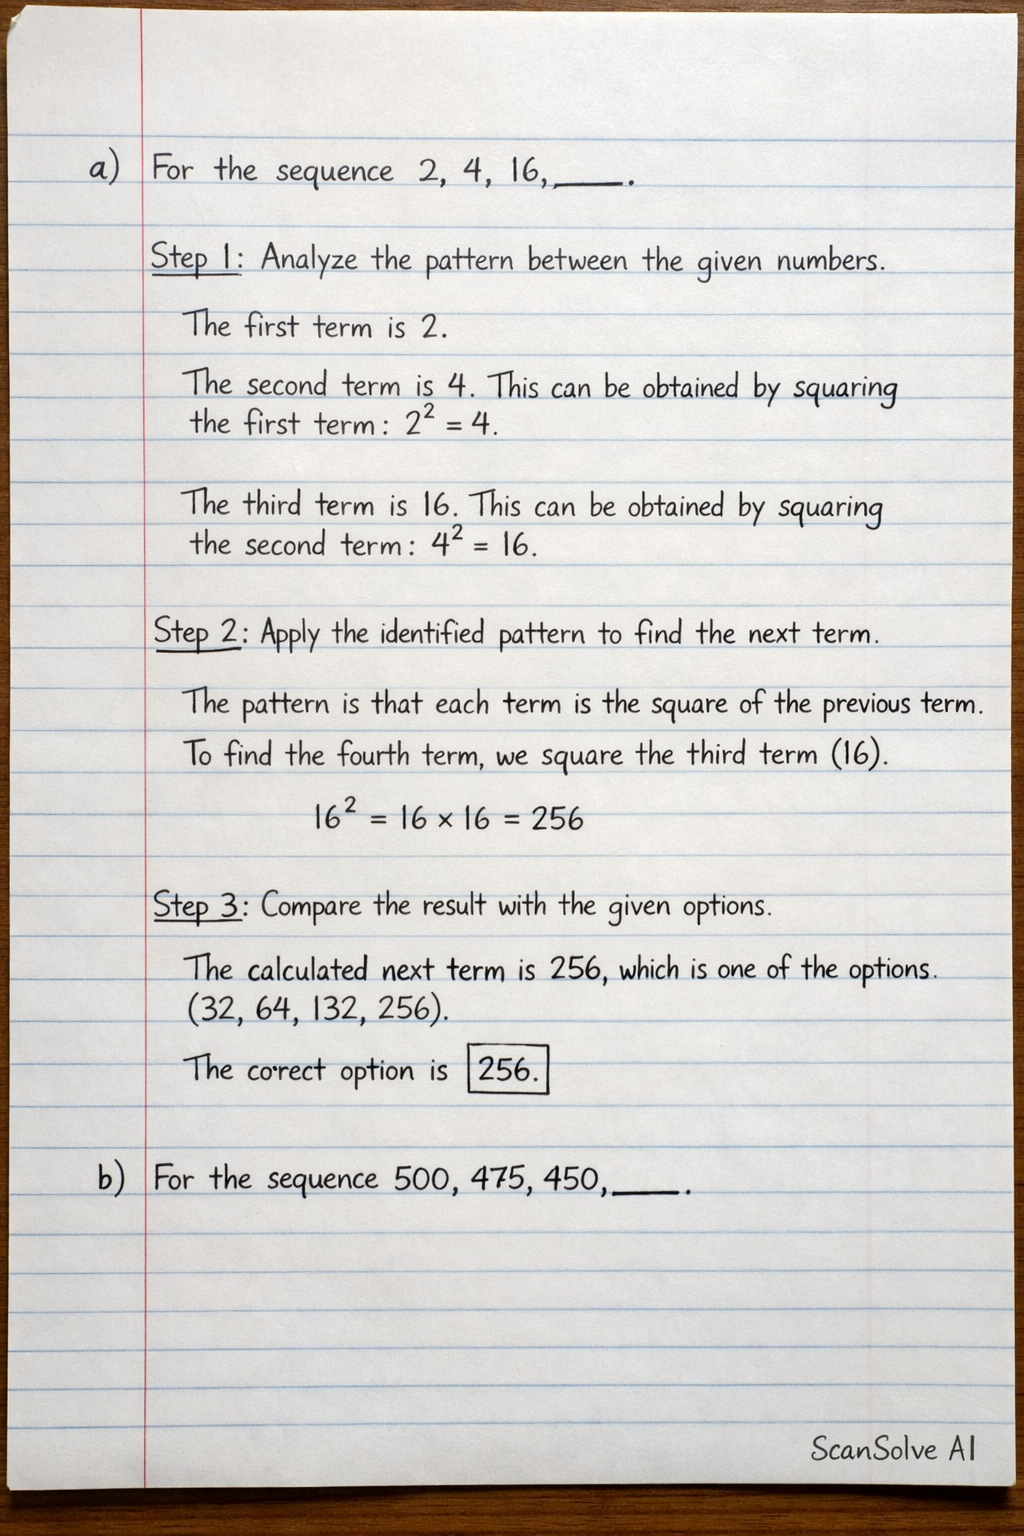 a) For the sequence 2, 4, 16, ____.
Step 1: Analyze the pattern between the given numbers.
The first term is 2.
The second term is 4. This can be obtained by squaring
the first term: 2² = 4.
The third term is 16. This can be obtained by squaring
the second term: 4² = 16.
Step 2: Apply the identified pattern to find the next term.
The pattern is that each term is the square of the previous term.
To find the fourth term, we square the third term (16).
16² = 16 × 16 = 256
Step 3: Compare the result with the given options.
The calculated next term is 256, which is one of the options.
(32, 64, 132, 256).
The correct option is 256.
b) For the sequence 500, 475, 450, ____.
ScanSolve AI